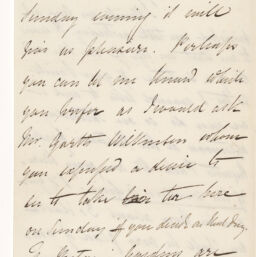 Sunday evening it will
give us pleasure. Perhaps
you can let me know which
you prefer as I would ask
Mr. Garth Wilkinson whom
you expressed a desire to
to take tea here
on Sunday if you decide on that day.
are